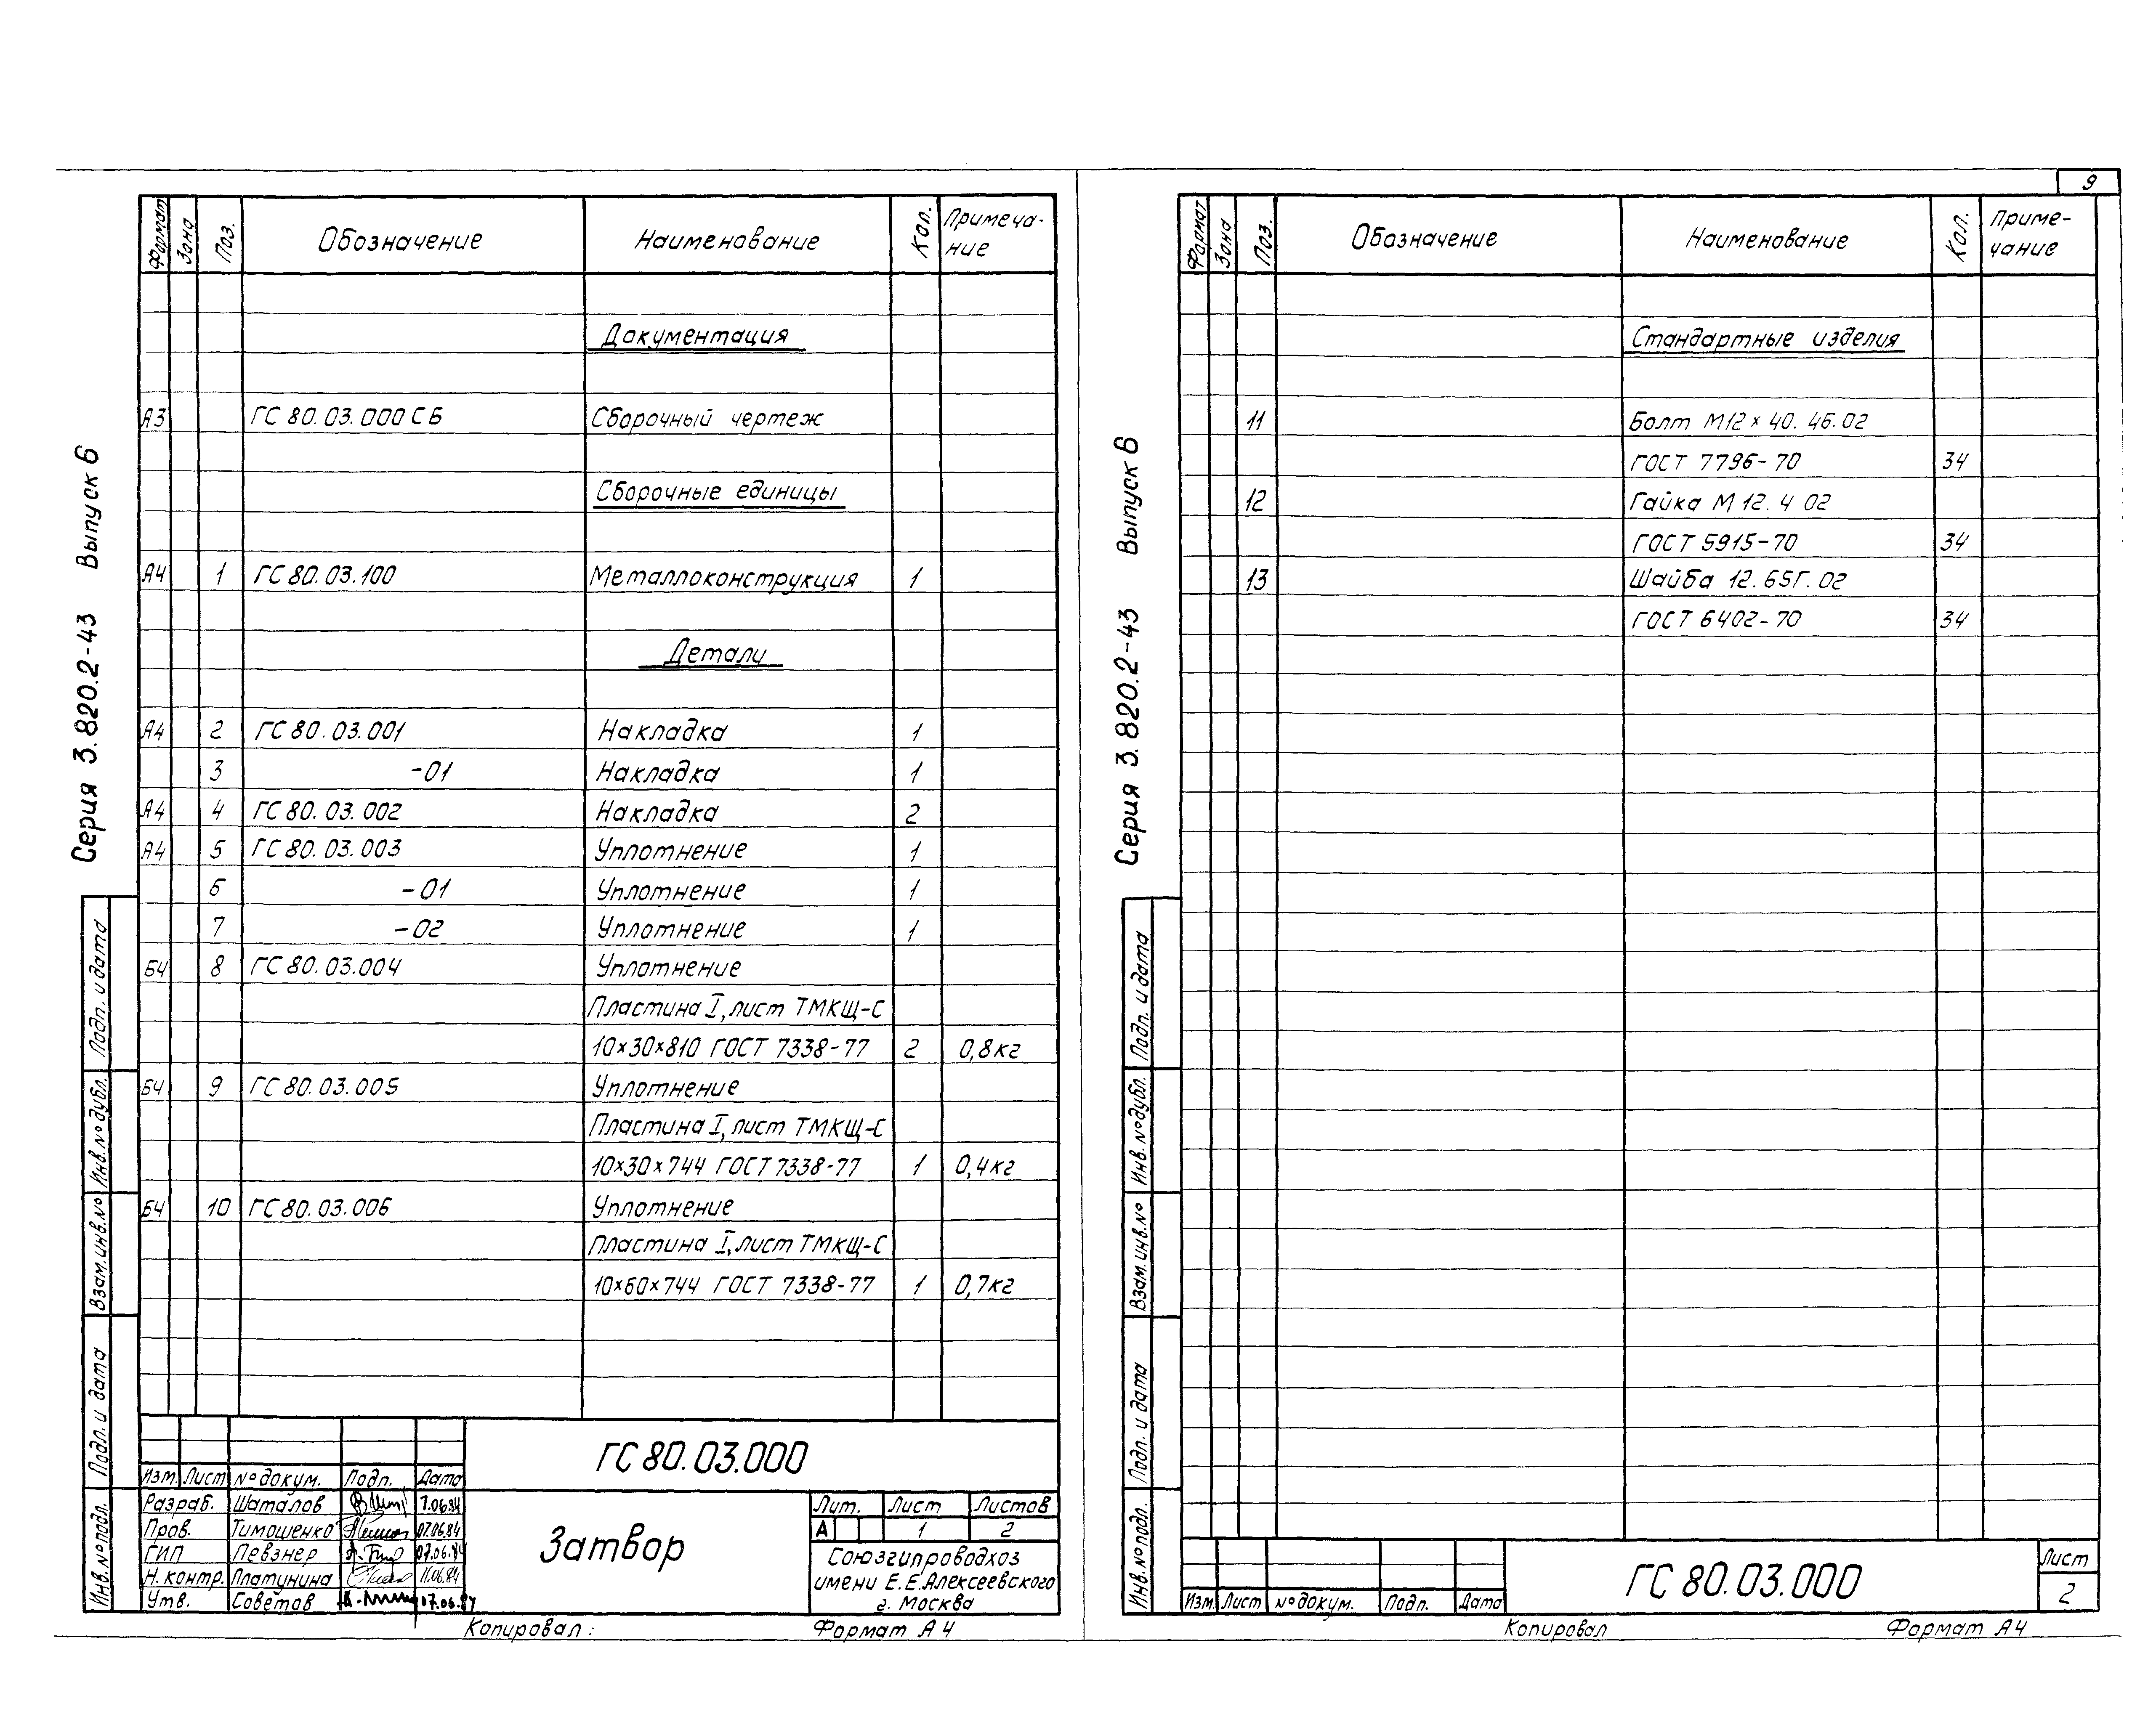 9
Серия 3.820.2-43 Выпуск 6
Формат Зона Поз. Обозначение Наименование Кол. Примеча-
ние
Документация
А3 ГС 80.03.000 СБ Сборочный чертеж
Сборочные единицы
А4 1 ГС 80.03.100 Металлоконструкция 1
Детали
А4 2 ГС 80.03.001 Накладка 1
3 -01 Накладка 1
А4 4 ГС 80.03.002 Накладка 2
А4 5 ГС 80.03.003 Уплотнение 1
6 -01 Уплотнение 1
7 -02 Уплотнение 1
Б4 8 ГС 80.03.004 Уплотнение
Пластина I, лист ТМКЩ-С
10×30×810 ГОСТ 7338-77 2 0,8кг
Б4 9 ГС 80.03.005 Уплотнение
Пластина I, лист ТМКЩ-С
10×30×744 ГОСТ 7338-77 1 0,4кг
Б4 10 ГС 80.03.006 Уплотнение
Пластина I, лист ТМКЩ-С
10×60×744 ГОСТ 7338-77 1 0,7кг
Подп. и дата
Инв. № дубл.
Взам. инв. №
Подп. и дата
Инв. № подл.
ГС 80.03.000
Изм. Лист № докум. Подп. Дата
Разраб. Шаталов 7.06.84
Пров. Тимошенко 07.06.84
ГИП Певзнер 07.06.84
Н. контр. Платунина 11.06.84
Утв. Советов 07.06.84
Затвор
Лит. Лист Листов
А 1 2
Союзгипроводхоз
имени Е.Е.Алексеевского
г. Москва
Копировал: Формат А4
Серия 3.820.2-43 Выпуск 6
Формат Зона Поз. Обозначение Наименование Кол. Приме-
чание
Стандартные изделия
11 Болт М12×40.46.02
ГОСТ 7796-70 34
12 Гайка М12.4 02
ГОСТ 5915-70 34
13 Шайба 12.65Г.02
ГОСТ 6402-70 34
Подп. и дата
Инв. № дубл.
Взам. инв. №
Подп. и дата
Инв. № подл.
Изм. Лист № докум. Подп. Дата
ГС 80.03.000
Лист
2
Копировал Формат А4